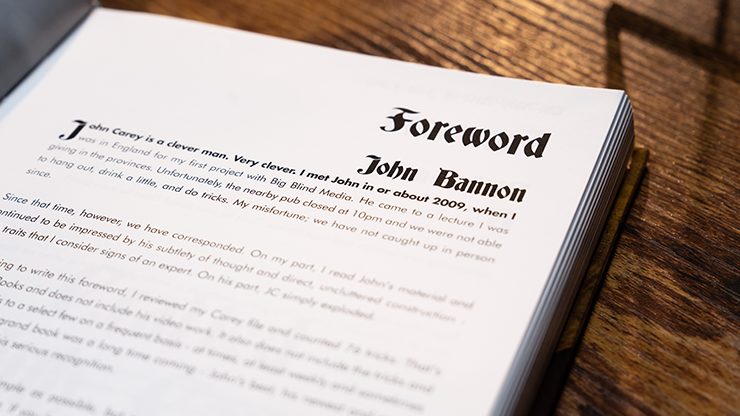 Foreword
John Bannon
John Carey is a clever man. Very clever. I met John in or about 2009, when I
was in England for my first project with Big Blind Media. He came to a lecture I was
giving in the provinces. Unfortunately, the nearby pub closed at 10pm and we were not able
to hang out, drink a little, and do tricks. My misfortune; we have not caught up in person
since.
Since that time, however, we have corresponded. On my part, I read John's material and
continued to be impressed by his subtlety of thought and direct, uncluttered construction -
traits that I consider signs of an expert. On his part, JC simply exploded.
to write this foreword, I reviewed my Carey file and counted 76 tricks. That's
Books and does not include his video work. It also does not include the tricks and
to a select few on a frequent basis - at times, at least weekly and sometimes
grand book was a long time coming - John's best, his newest and
his serious recognition.
as possible, but